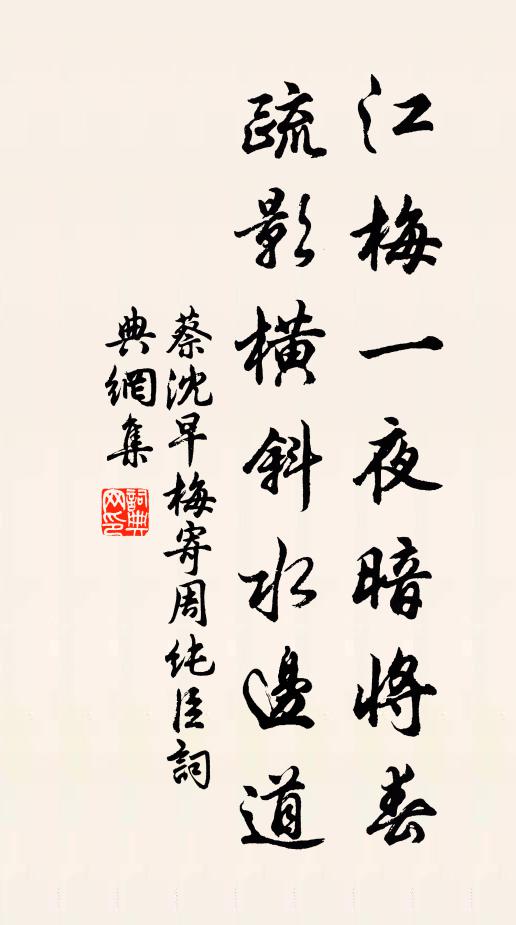 江梅一夜暗將春
疏影橫斜水邊道
蔡沈早梅寄周純臣詞
典網集
詞典
网印